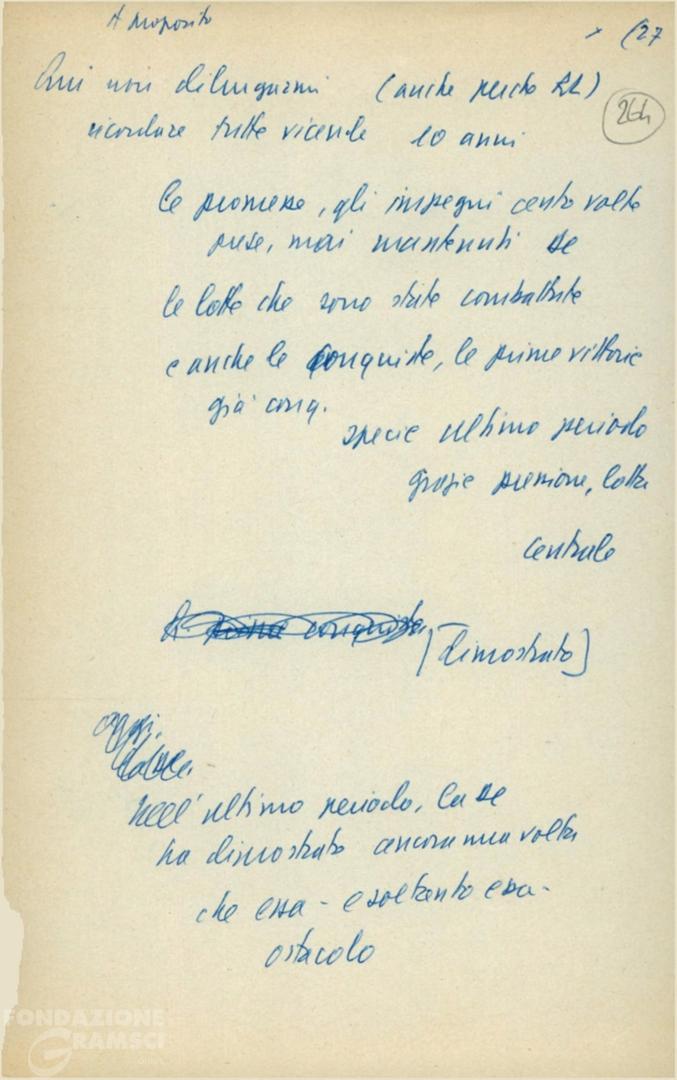 A proposito
(27
Qui non dilungarmi (anche perché LL)
264
ricordare tutte vicende 10 anni
le promesse, gli impegni cento volte
prese, mai mantenuti
le lotte che sono state combattute
e anche le conquiste, le prime vittorie
già conq.
specie ultimo periodo
grazie pressione, lotta
centrale
conquista
[dimostrato]
oggi.
Nell'ultimo periodo, la
ha dimostrato ancora una volta
che essa - e soltanto essa -
ostacolo
FONDAZIONE
GRAMSCI